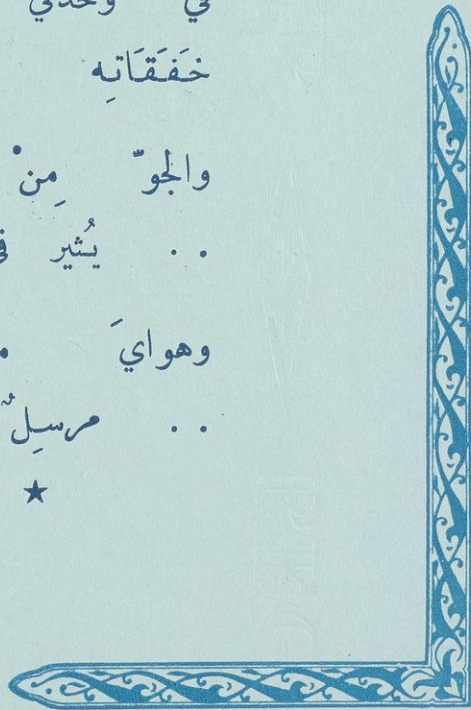 في وحدتي
خَفَقَاتِه
والجوّ مِنْ
. . يُثير
وهوايَ
. . مرسِلٌ
★